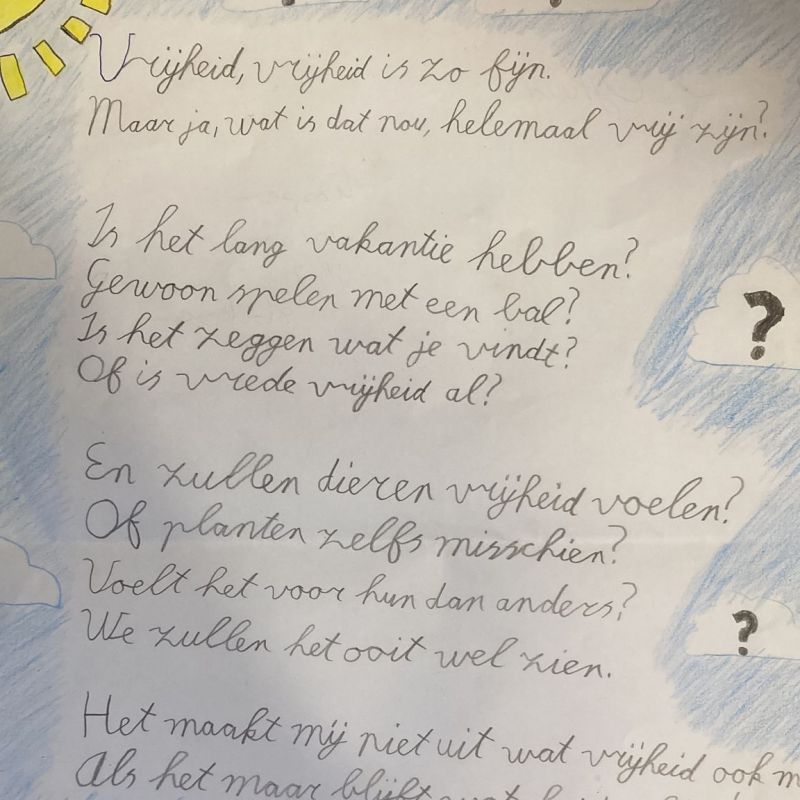 Vrijheid, vrijheid is zo fijn.
Maar ja, wat is dat nou, helemaal vrij zijn?
Is het lang vakantie hebben?
Gewoon spelen met een bal?
Is het zeggen wat je vindt?
Of is vrede vrijheid al?
En zullen dieren vrijheid voelen?
Of planten zelfs misschien?
Voelt het voor hun dan anders?
We zullen het ooit wel zien.
Het maakt mij niet uit wat vrijheid ook
Als het maar blijft
?
?